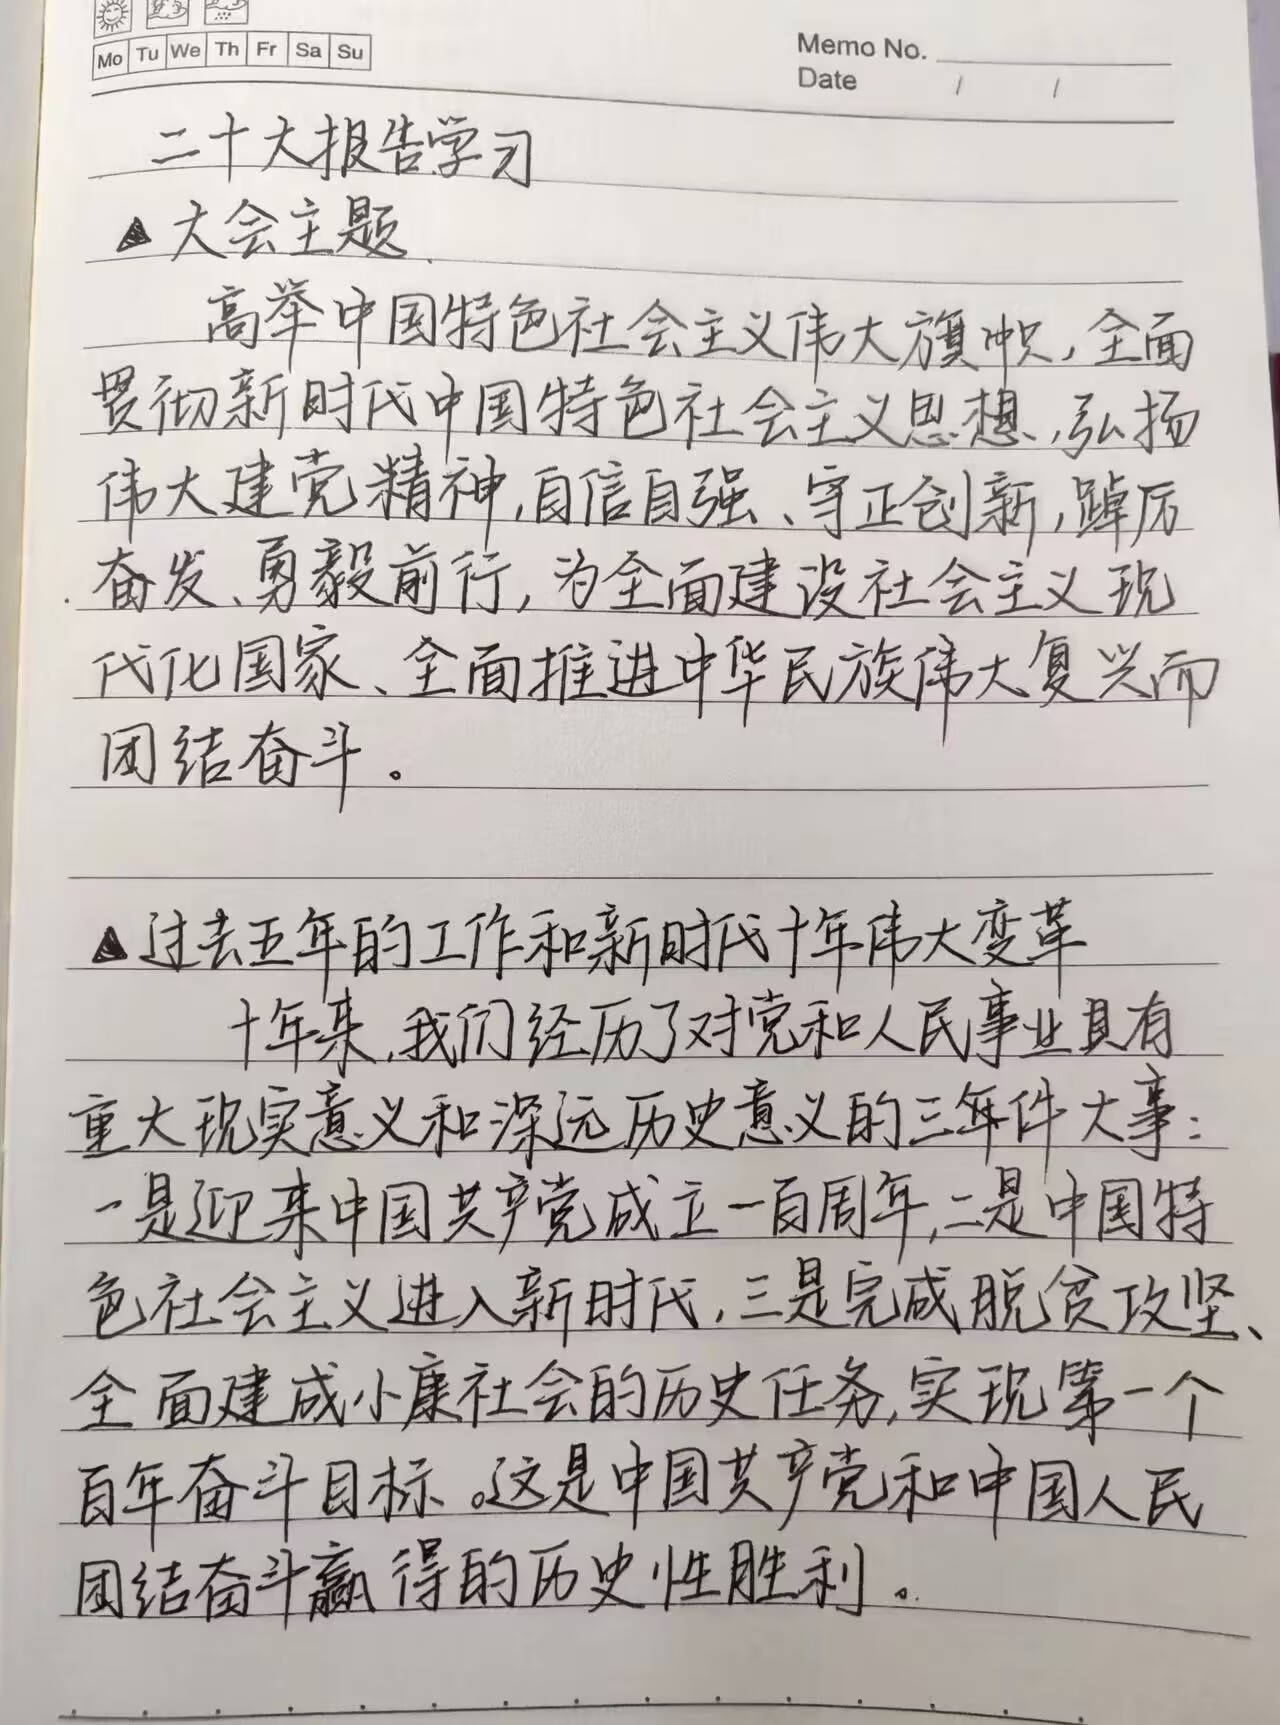 Mo Tu We Th Fr Sa Su
Memo No.
Date / /
二十大报告学习
▲大会主题
高举中国特色社会主义伟大旗帜,全面
贯彻新时代中国特色社会主义思想,弘扬
伟大建党精神,自信自强、守正创新,踔厉
奋发、勇毅前行,为全面建设社会主义现
代化国家、全面推进中华民族伟大复兴而
团结奋斗。
▲过去五年的工作和新时代十年伟大变革
十年来,我们经历了对党和人民事业具有
重大现实意义和深远历史意义的三年件大事:
一是迎来中国共产党成立一百周年,二是中国特
色社会主义进入新时代,三是完成脱贫攻坚、
全面建成小康社会的历史任务,实现第一个
百年奋斗目标。这是中国共产党和中国人民
团结奋斗赢得的历史性胜利。